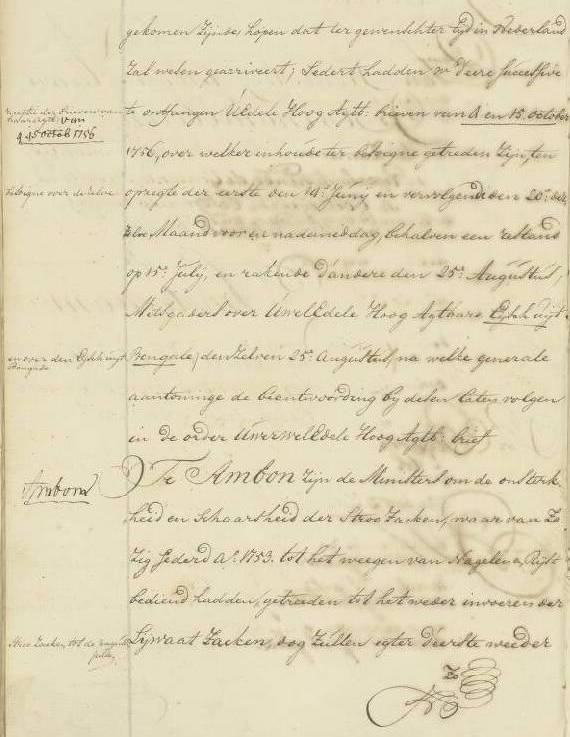 gekomen zijnde, hopen dat ter gewenschter tijd in Nederland
zal wesen gearriveert; Sedert hadden w' d'eere successive
te ontfangen UEdele Hoog Agtb: brieven van 4 en 15. october
van
4 15 octob 1756
1756, over welker inhoude ter besoigne getreden zijn, ten
besoigne over deselve
opzigte der eerste den 14: Junij en vervolgende den 20: der
zelve Maand voor en nademiddag, behalven een restand
op 15: July, en rakende d'andere den 25: Augustus,
Mitsgaders over UwelEdele Hoog Agtbare Eysch uijt
en over den Eysch uijt
Bengale
Bengale, den zelven 25: Augustus, na welke generale
aantoninge de beantwoording by delen laten volgen
in de order UwerwelEdele Hoog Agtb: brief
Ambon
Te Ambon zijn de Ministers om de onsterk
heid en Schaarsheid der Stroo Zacken, waar van Ze
zig sederd Ao. 1753. tot het weegen van Nagelen en Rijst
bediend hadden, getreden tot het weder invoeren der
Stroo Zacken, tot de
Lijwaat Zacken, dog zullen egter d'eerste weeder
Zo